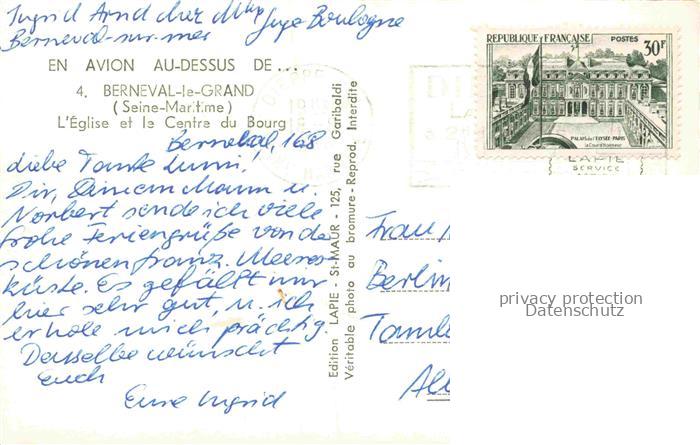 Ingrid Arnd chez Mlle Boulogne
Berneval-sur-mer
EN AVION AU-DESSUS DE...
4. BERNEVAL-le-GRAND
(Seine-Maritime)
L'Église et le Centre du Bourg
Berneval, 16.8
Liebe Tante Lumi!
Dir, Deinem Mann u.
Norbert sende ich viele
frohe Feriengrüße von der
schönen franz. Meeres-
küste. Es gefällt mir
hier sehr gut, u. ich
erhole mich prächtig.
Dasselbe wünscht
Euch
Eure Ingrid
Edition LAPIE - St-MAUR - 125, rue Garibaldi
Véritable photo au bromure - Reprod. Interdite
RÉPUBLIQUE FRANÇAISE POSTES
30F
PALAIS de l'ÉLYSÉE-PARIS
la Cour d'Honneur
DIEPPE
LAPIE
SERVICE
Frau
Berlin
All
privacy protection
Datenschutz